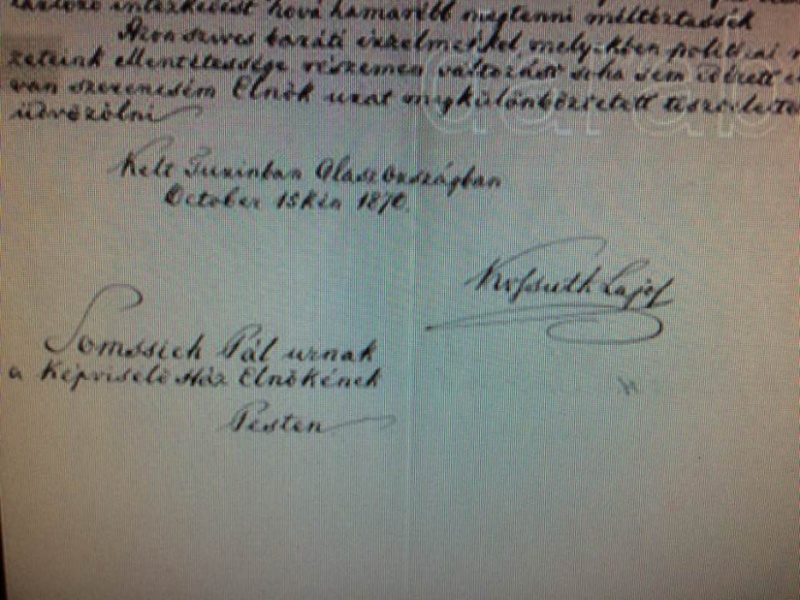 intézkedést hová hamarébb megtenni méltóztassék
Azon szives baráti érzelmekkel melyekben politicai
zeteink ellentétessége részemen változást soha sem idézett e
van szerencsém Elnök urat megkülönböztetett tisztelettel
üdvözölni
Kelt Turinban Olaszországban
October 15kén 1870.
Kossuth Lajos
Somssich Pál urnak
a Képviselő Ház Elnökének
Pesten